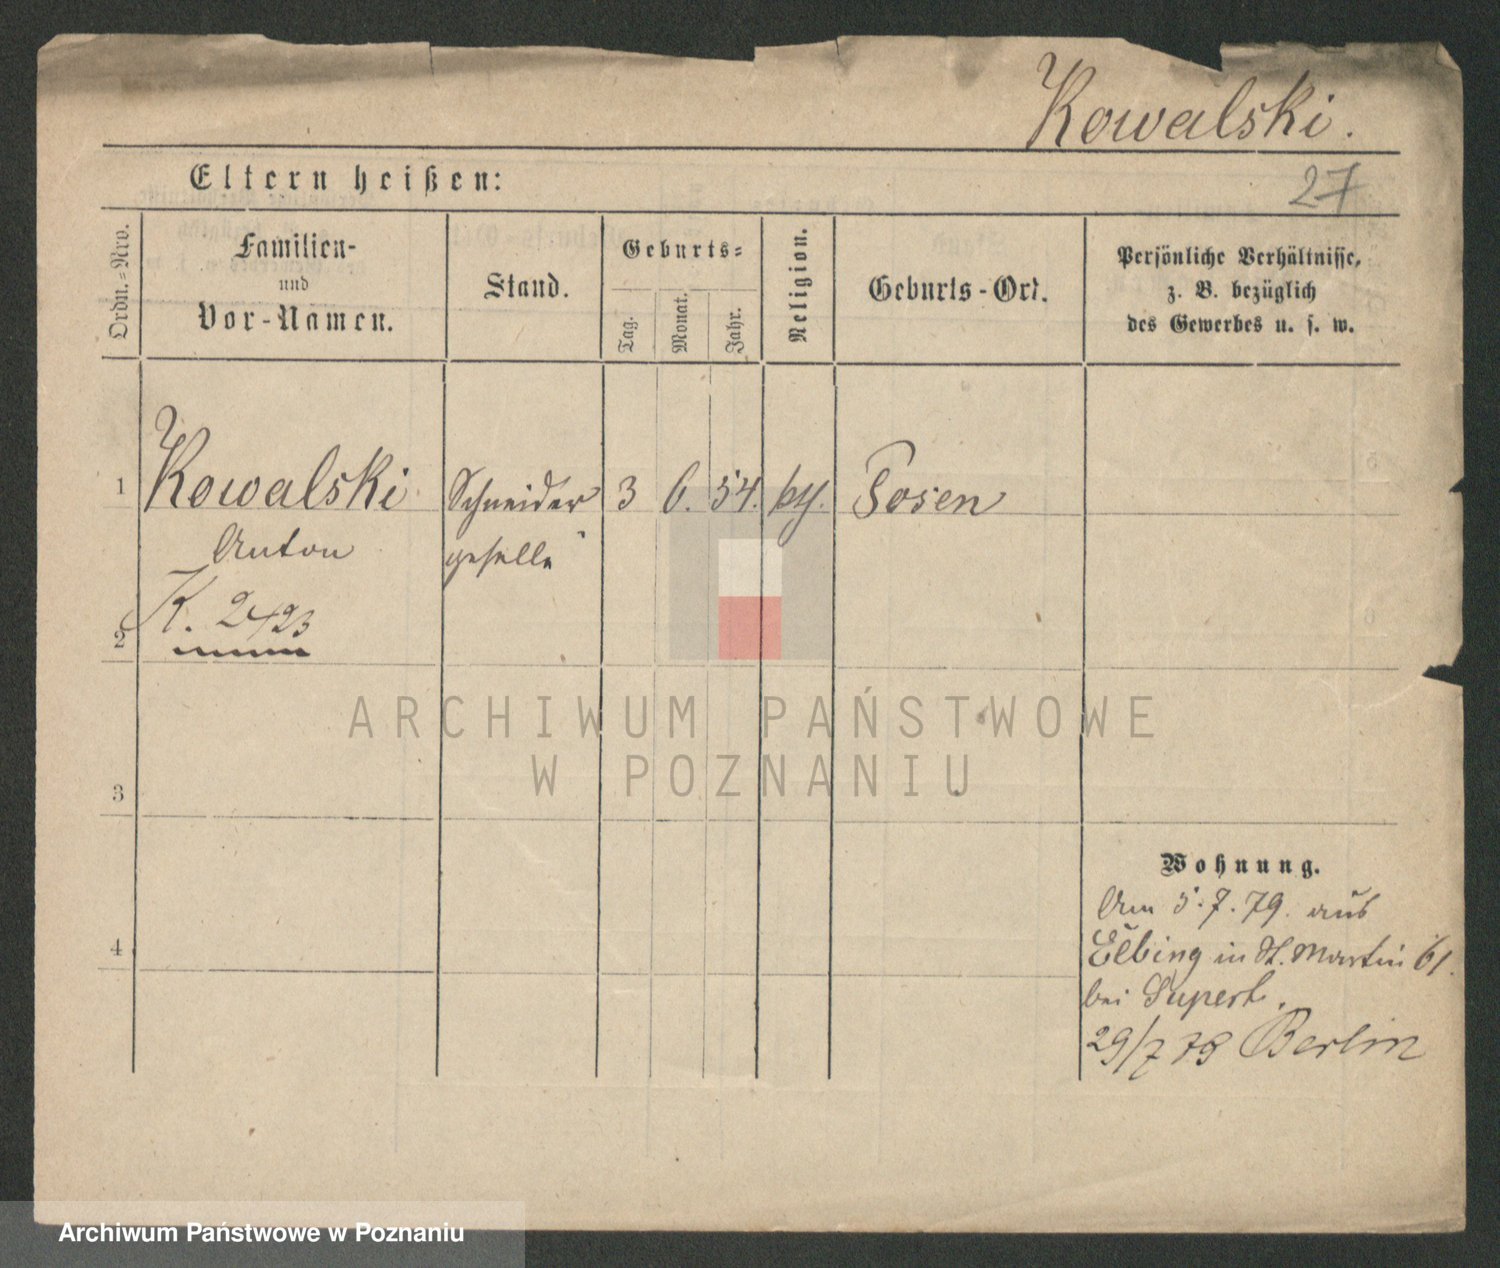 Kowalski.
Eltern heißen:
27
Ordn.=Nro.
Familien-
und
Vor-Namen.
Stand.
Geburts=
Tag.
Monat.
Jahr.
Religion.
Geburts-Ort.
Persönliche Verhältnisse,
z. B. bezüglich
des Gewerbes u. s. w.
1 Kowalski Schneider 3 6. 54. Posen
Anton geselle
2 K. 2423
ARCHIWUM PAŃSTWOWE
W POZNANIU
3
Wohnung.
Am 5.7.79. aus
4 Elbing in St. Martin 61.
bei
29/7 79 Berlin
Archiwum Państwowe w Poznaniu